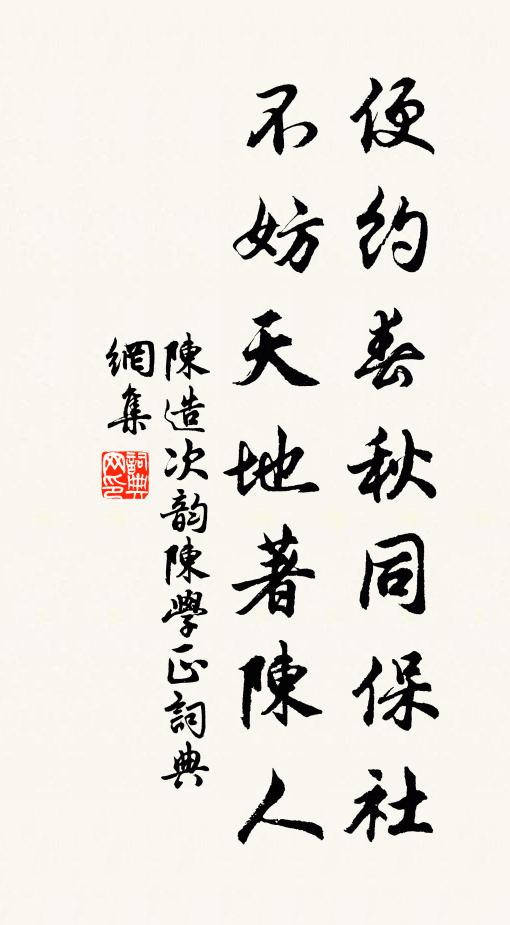 便約春秋同保社
不妨天地著陳人
陳造次韵陳學正詞典
網集
詞典
网印